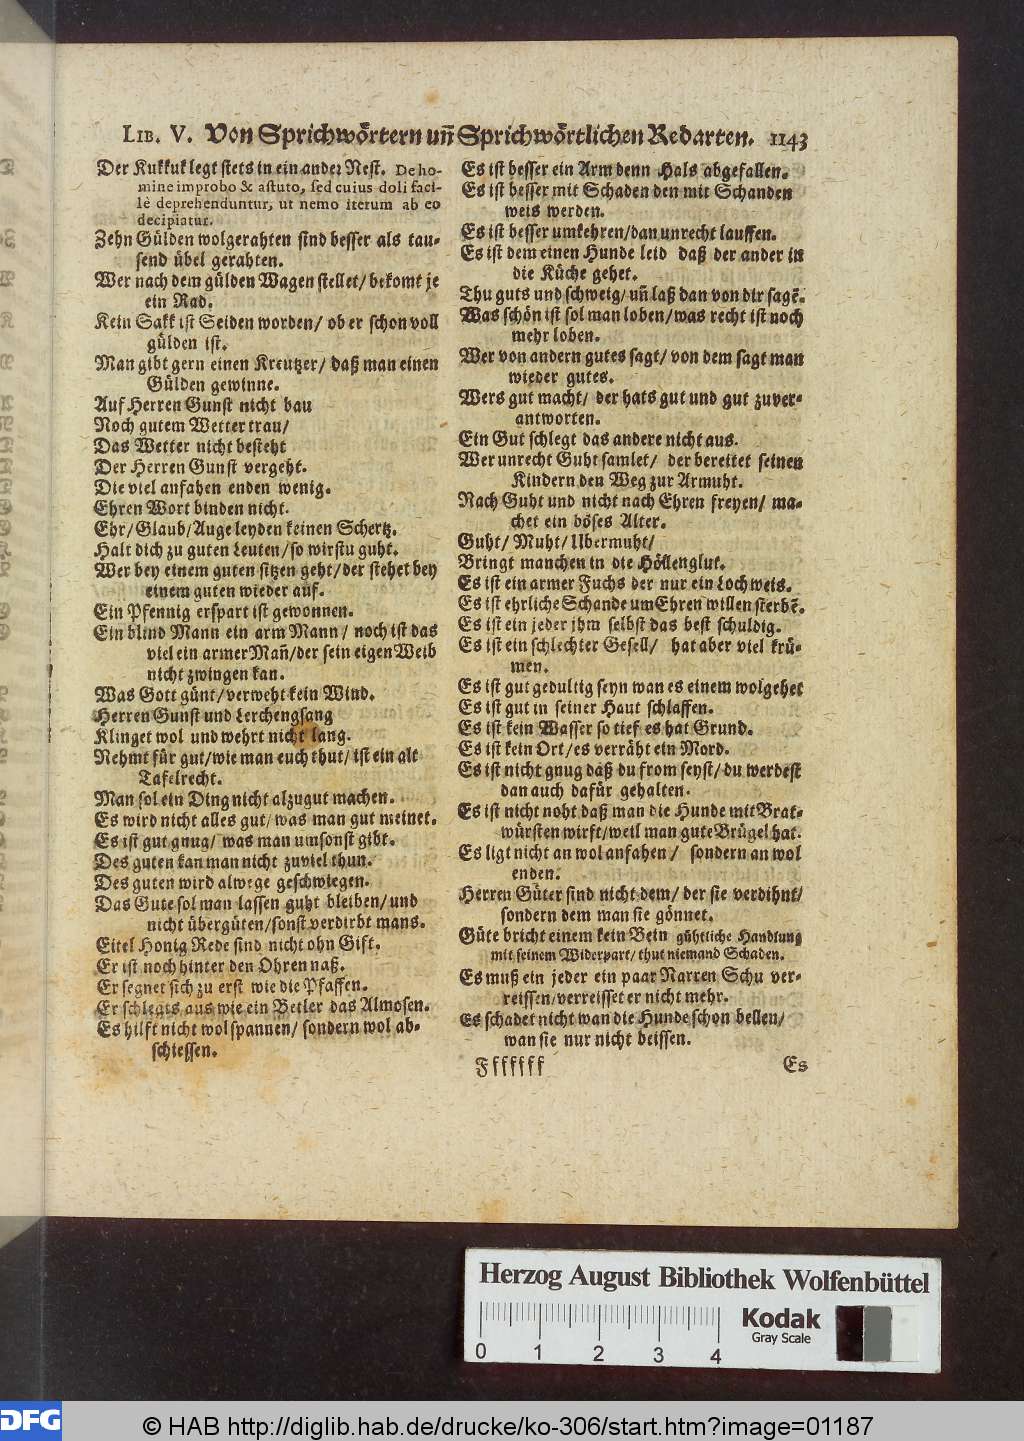 LIB. V. Von Sprichwörtern uñ Sprichwörtlichen Redarten. 1143
Der Kukkuk legt stets in ein ander Nest. De ho-
mine improbo & astuto, sed cuius doli faci-
lè deprehenduntur, ut nemo iterum ab eo
decipiatur.
Zehn Gülden wolgerahten sind besser als tau-
send übel gerahten.
Wer nach dem gülden Wagen stellet/ bekomt je
ein Rad.
Kein Sakk ist Seiden worden/ ob er schon voll
gülden ist.
Man gibt gern einen Kreutzer/ daß man einen
Gülden gewinne.
Auf Herren Gunst nicht bau
Noch gutem Wetter trau/
Das Wetter nicht besteht
Der Herren Gunst vergeht.
Die viel anfahen enden wenig.
Ehren Wort binden nicht.
Ehr/ Glaub/ Auge leyden keinen Schertz.
Halt dich zu guten Leuten/ so wirstu guht.
Wer bey einem guten sitzen geht/ der stehet bey
einem guten wieder auf.
Ein Pfennig erspart ist gewonnen.
Ein blind Mann ein arm Mann/ noch ist das
viel ein armer Mañ/ der sein eigen Weib
nicht zwingen kan.
Was Gott günt/ verweht kein Wind.
Herren Gunst und Lerchengsang
Klinget wol und wehrt nicht lang.
Nehmt für gut/ wie man euch thut/ ist ein alt
Tafelrecht.
Man sol ein Ding nicht alzugut machen.
Es wird nicht alles gut/ was man gut meinet.
Es ist gut gnug/ was man umsonst gibt.
Des guten kan man nicht zuviel thun.
Des guten wird alwege geschwiegen.
Das Gute sol man lassen guht bleiben/ und
nicht übergüten/ sonst verdirbt mans.
Eitel Honig Rede sind nicht ohn Gift.
Er ist noch hinter den Ohren naß.
Er segnet sich zu erst wie die Pfaffen.
Er schlegts aus wie ein Betler das Almosen.
Es hilft nicht wol spannen/ sondern wol ab-
schiessen.
Es ist besser ein Arm denn Hals abgefallen.
Es ist besser mit Schaden den mit Schanden
weis werden.
Es ist besser umkehren/ dan unrecht lauffen.
Es ist dem einen Hunde leid daß der ander in
die Küche gehet.
Thu guts und schweig/ uñ laß dan von dir sagẽ.
Was schön ist sol man loben/ was recht ist noch
mehr loben.
Wer von andern gutes sagt/ von dem sagt man
wieder gutes.
Wers gut macht/ der hats gut und gut zuver-
antworten.
Ein Gut schlegt das andere nicht aus.
Wer unrecht Guht samlet/ der bereitet seinen
Kindern den Weg zur Armuht.
Nach Guht und nicht nach Ehren freyen/ ma-
chet ein böses Alter.
Guht/ Muht/ Ubermuht/
Bringt manchen in die Höllenglut.
Es ist ein armer Fuchs der nur ein Loch weis.
Es ist ehrliche Schande um Ehren willen sterbẽ.
Es ist ein jeder jhm selbst das best schuldig.
Es ist ein schlechter Gesell/ hat aber viel krü-
men.
Es ist gut gedultig seyn wan es einem wolgehet
Es ist gut in seiner Haut schlaffen.
Es ist kein Wasser so tief es hat Grund.
Es ist kein Ort/ es verräht ein Mord.
Es ist nicht gnug daß du from seyst/ du werdest
dan auch dafür gehalten.
Es ist nicht noht daß man die Hunde mit Brat-
würsten wirft/ weil man gute Brügel hat.
Es ligt nicht an wol anfahen/ sondern an wol
enden.
Herren Güter sind nicht dem/ der sie verdihnt/
sondern dem man sie gönnet.
Güte bricht einem kein Bein gühtliche Handlung
mit seinem Widerpart/ thut niemand Schaden.
Es muß ein jeder ein paar Narren Schu ver-
reissen/ verreisset er nicht mehr.
Es schadet nicht wan die Hunde schon bellen/
wan sie nur nicht beissen.
Ffffff Es
Herzog August Bibliothek Wolfenbüttel
Kodak
Gray Scale
0 1 2 3 4
DFG © HAB http://diglib.hab.de/drucke/ko-306/start.htm?image=01187